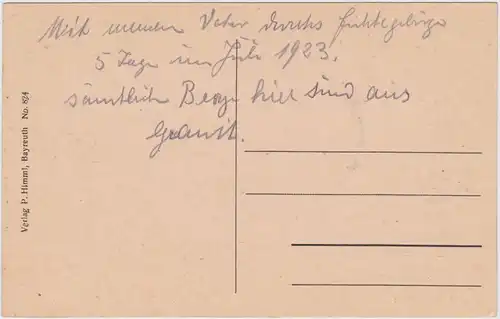 Mit meinem Vater durchs Fichtelgebirge
5 Tage im Juli 1923.
sämtliche Berge hier sind aus
Granit.
Verlag P. Himml, Bayreuth No. 824